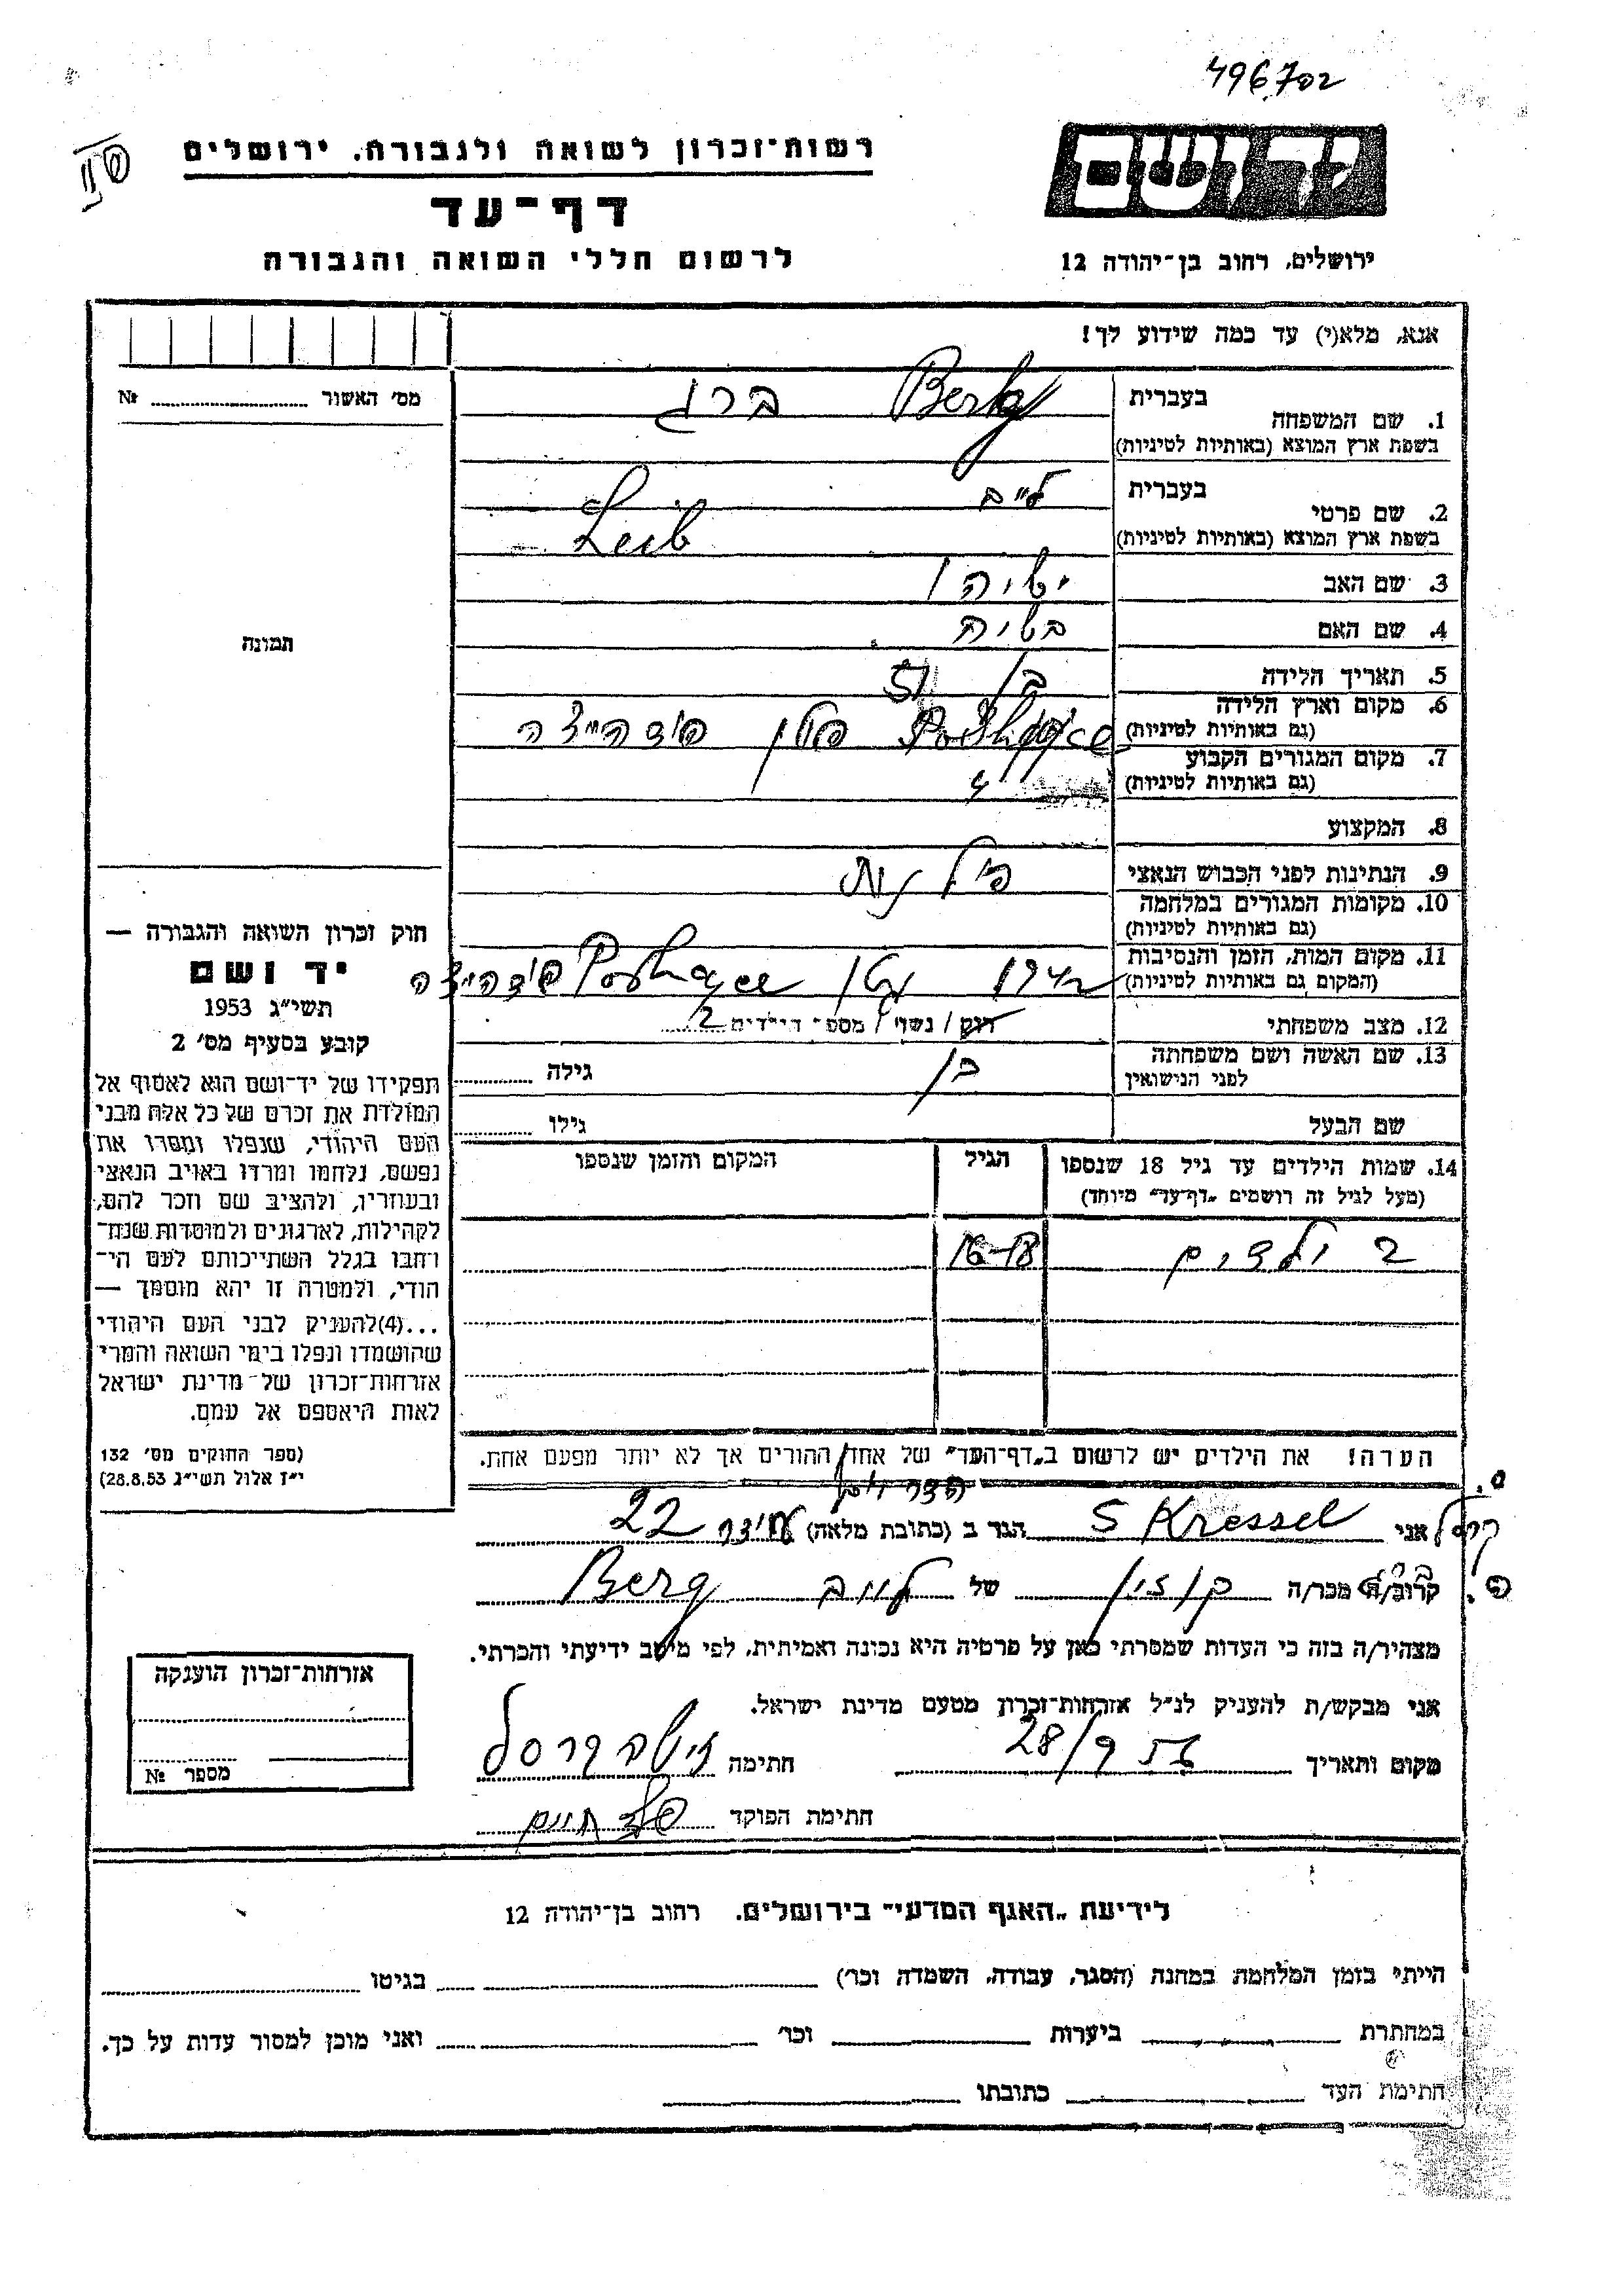 496702
יד ושם
ירושלים, רחוב בן־יהודה 12
רשות־זכרון לשואה ולגבורה, ירושלים
דף־עד
לרשום חללי השואה והגבורה
אנא, מלא(י) עד כמה שידוע לך!
מס' האשור № 
1. שם המשפחה בעברית ברג Berg
בשפת ארץ המוצא (באותיות לטיניות)
2. שם פרטי בעברית לייב
בשפת ארץ המוצא (באותיות לטיניות) Leib
3. שם האב ישיהו
4. שם האם בשיה
5. תאריך הלידה בן 51
6. מקום וארץ הלידה
(גם באותיות לטיניות) פולין
7. מקום המגורים הקבוע
(גם באותיות לטיניות)
8. המקצוע
9. הנתינות לפני הכבוש הנאצי פולנית
10. מקומות המגורים במלחמה
(גם באותיות לטיניות)
11. מקום המות, הזמן והנסיבות
(המקום גם באותיות לטיניות)
12. מצב משפחתי רווק / נשוי / מספר הילדים 2
13. שם האשה ושם משפחתה
לפני הנישואין גילה
שם הבעל גילו
14. שמות הילדים עד גיל 18 שנספו הגיל המקום והזמן שנספו
(מעל לגיל זה רושמים „דף־עד” מיוחד)
2 ילדים 16-18
הערה! את הילדים יש לרשום ב„דף־העד” של אחד ההורים אך לא יותר מפעם אחת.
תמונה
חוק זכרון השואה והגבורה —
יד ושם
תשי״ג 1953
קובע בסעיף מס' 2
תפקידו של יד־ושם הוא לאסוף אל
המולדת את זכרם של כל אלה מבני
העם היהודי, שנפלו ומסרו את
נפשם, נלחמו ומרדו באויב הנאצי
ובעוזריו, ולהציב שם וזכר להם,
לקהילות, לארגונים ולמוסדות שנח־
רבו בגלל השתייכותם לעם הי־
הודי, ולמטרה זו יהא מוסמך —
...(4)להעניק לבני העם היהודי
שהושמדו ונפלו בימי השואה והמרי
אזרחות־זכרון של מדינת ישראל
לאות היאספם אל עמם.
(ספר החוקים מס' 132
י״ז אלול תשי״ג 28.8.53)
קרסל אני S Kressel הגר ב (כתובת מלאה) 22
קרוב/ה מכר/ה של לייב Berg
מצהיר/ה בזה כי העדות שמסרתי כאן על פרטיה היא נכונה ואמיתית, לפי מיטב ידיעתי והכרתי.
אני מבקש/ת להעניק לנ״ל אזרחות־זכרון מטעם מדינת ישראל.
מקום ותאריך 28/9 חתימה קרסל
חתימת הפוקד חיים
אזרחות־זכרון הוענקה
מספר №
לידיעת „האגף המדעי” בירושלים, רחוב בן־יהודה 12
הייתי בזמן המלחמה במחנה (הסגר, עבודה, השמדה וכר') בגיטו
במחתרת ביערות וכר' ואני מוכן למסור עדות על כך.
חתימת העד כתובתו